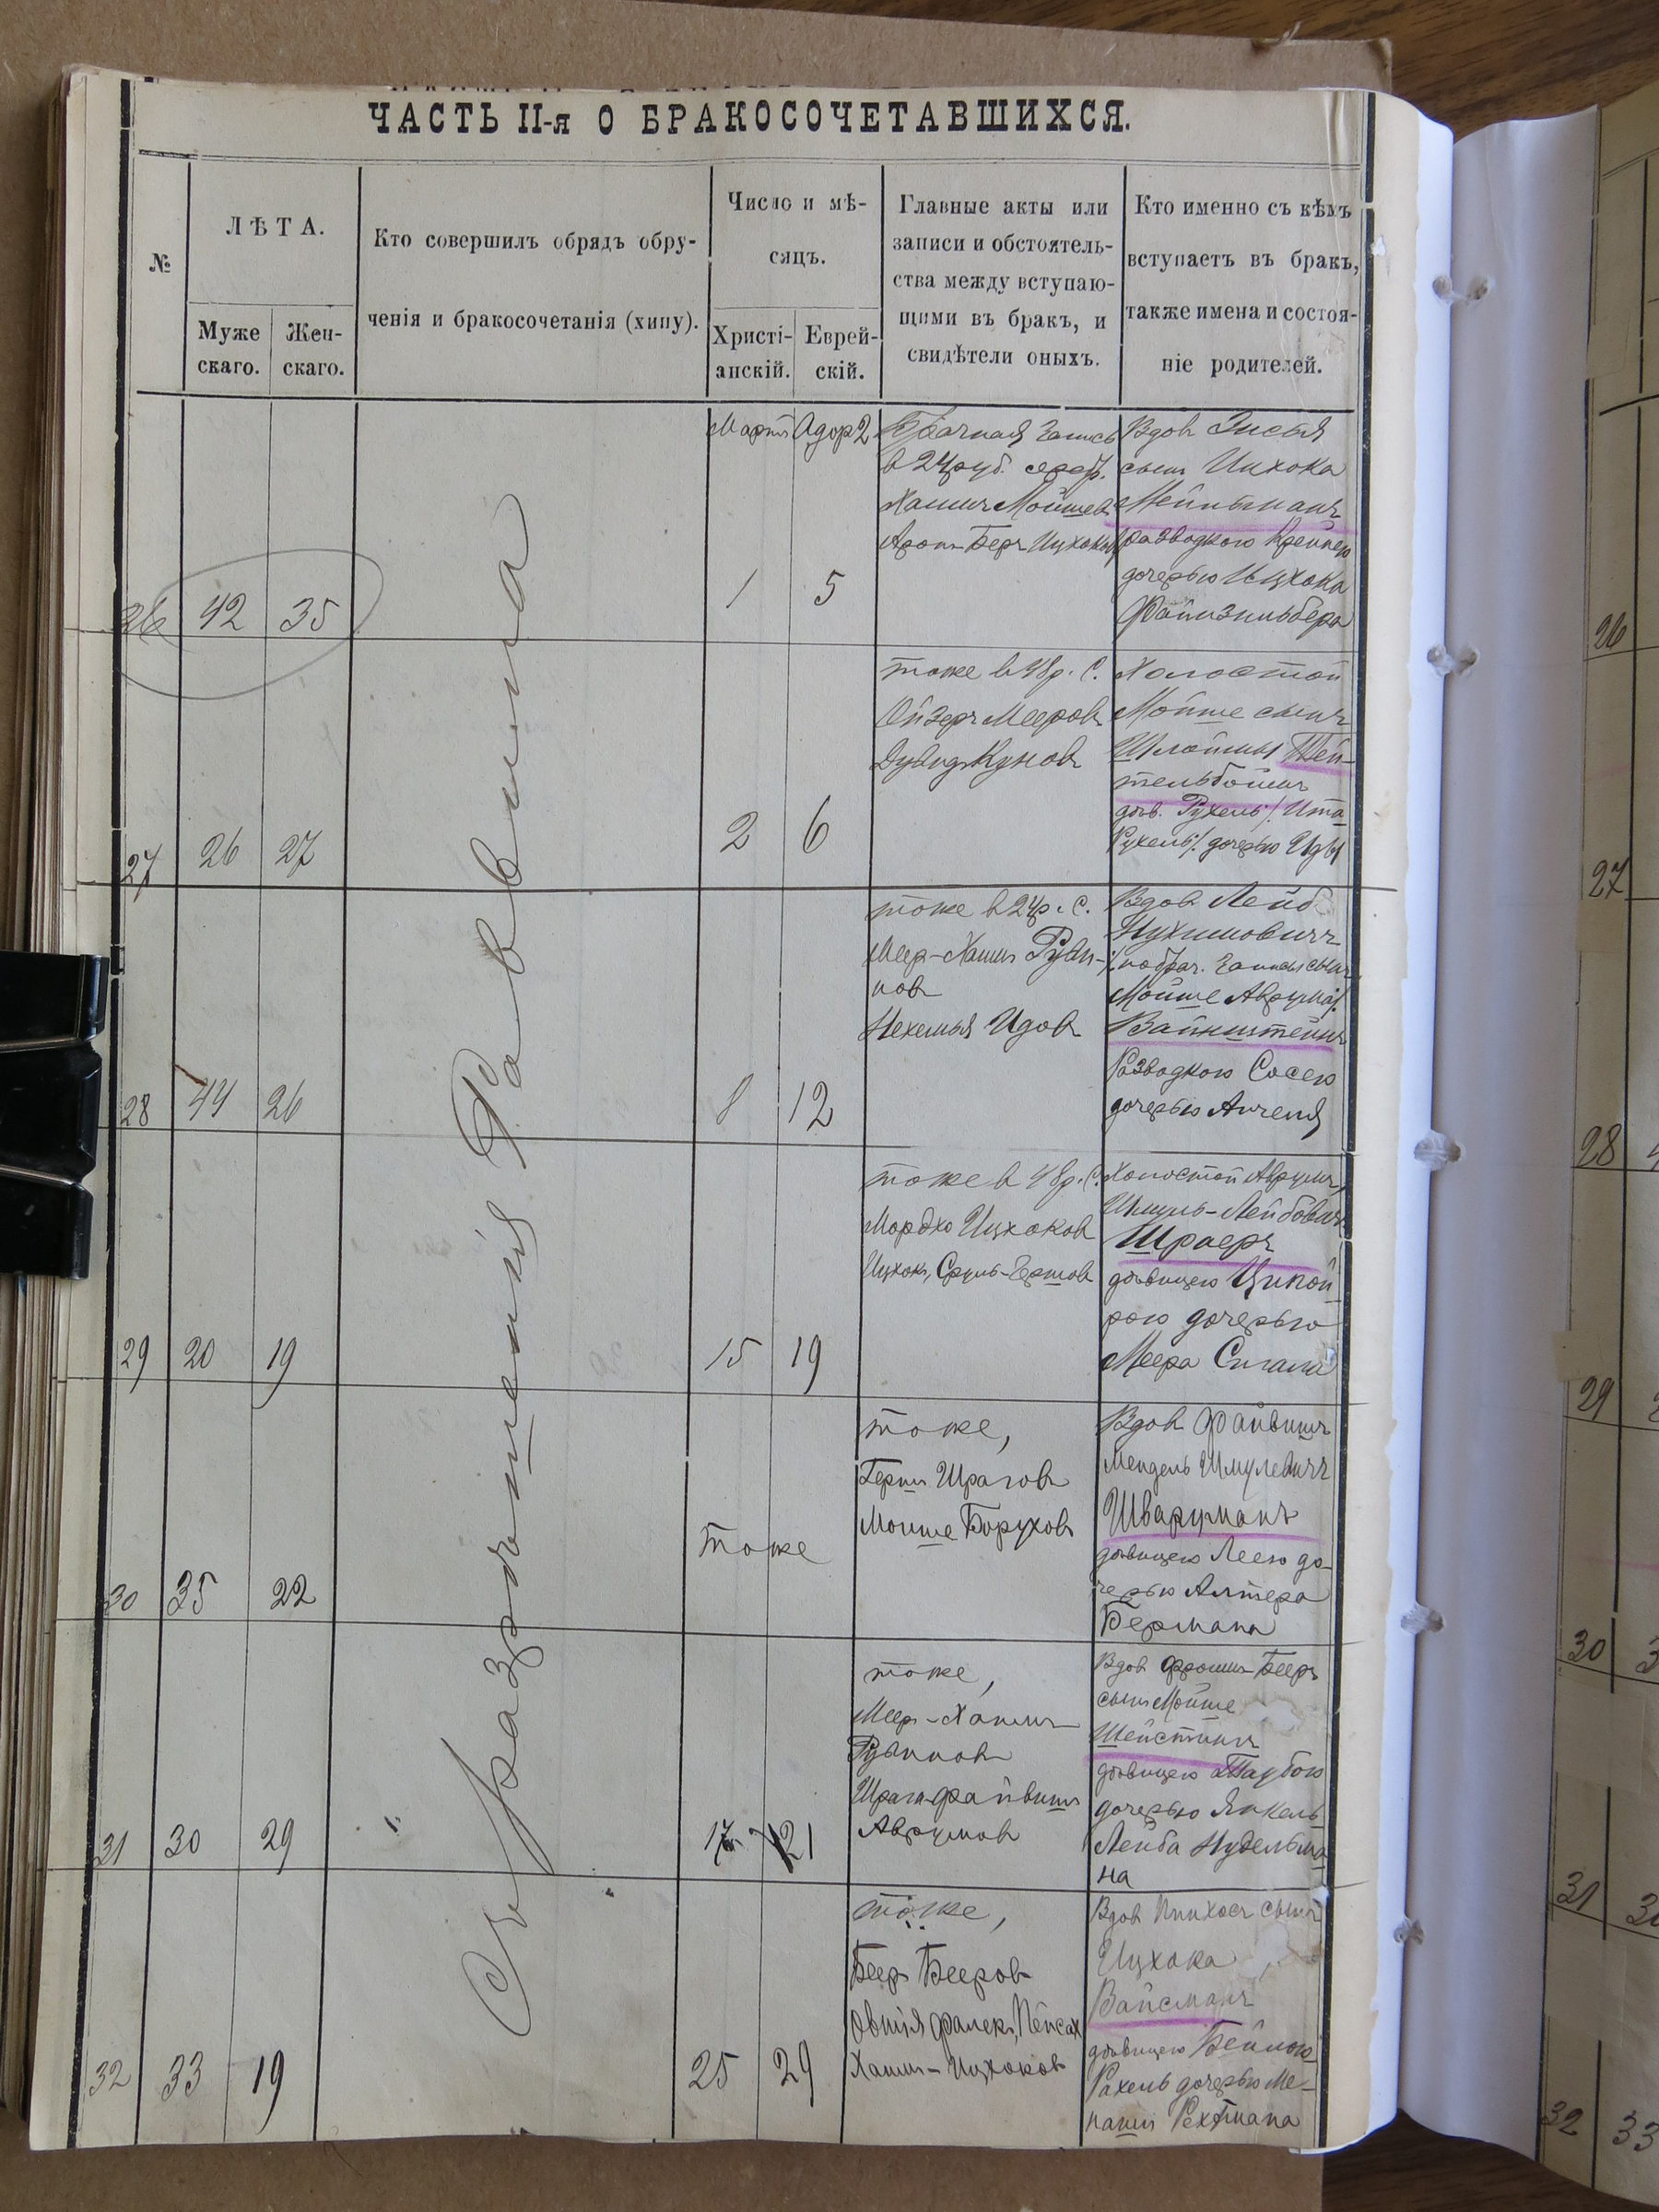 ЧАСТЬ II-я О БРАКОСОЧЕТАВШИХСЯ.
№
ЛѢТА.
Муже
скаго.
Жен-
скаго.
Кто совершилъ обрядъ обру-
ченія и бракосочетанія (хипу).
Число и мѣ-
сяцъ.
Христі-
анскій.
Еврей-
скій.
Главные акты или
записи и обстоятель-
ства между вступаю-
щими въ бракъ, и
свидѣтели оныхъ.
Кто именно съ кѣмъ
вступаетъ въ бракъ,
также имена и состоя-
ніе родителей.
Съ разрѣшенія Раввина
26
42
35
Мартъ
Адор 2
1
5
Брачная Запись
в 24 руб. сереб.
Хаимъ Мойшев
Аронъ-Беръ Ицхоков
Вдов
сынъ Ицхока
разводкою Крейнею
дочерью Ицхока
Файнзильбера
27
26
27
2
6
тоже в 48 р. С.
Ойзеръ Мееров
Дувид Кунов
Холостой
Мойше сынъ
Шлоймы Тей-
тельбоимъ
дѣв. Рухель /: Ита
Рухель :/ дочерью Иды
28
44
26
8
12
тоже в 24 р. С.
Меер-Хаимъ Руви-
нов
Нехемья Идов
Вдов Лейб
Нухимовичъ
/: по брач. Записи сынъ
Мойше Аврума :/
Вайнштейнъ
Разводкою Сосею
дочерью Анчеля
29
20
19
15
19
тоже в 48 р. С.
Мордхо Ицхоков
Ицхокъ, Сруль-Гершов
Холостой Аврумъ,
Шмуль-Лейбовичъ
Шраеръ
дѣвицею Ципой-
рою дочерью
Меера Сигала
30
35
22
тоже
тоже,
Гершъ Шрагов
Мойше Борухов
Вдов Файвишъ
Мендель Шмулевичъ
Шварцманъ
дѣвицею Леею до-
черью Алтера
Бермана
31
30
29
17
21
тоже,
Меер-Хаимъ
Рувинов
Шрага Файвишъ
Аврумов
Вдов Фроимъ Бееръ
сынъ Мойше
Шейстинъ
дѣвицею Таубою
дочерью Янкель
Лейба Нудельма-
на
32
33
19
25
29
тоже,
Беер Бееров
Овшія Фалекъ, Пейсах
Хаимъ-Ицхоков
Вдов Пинхосъ сынъ
Ицхока
Вайсманъ
дѣвицею Бейлою
Рахель дочерью Ме-
наши Рехтмана
26
27
28
29
30
31
32
33